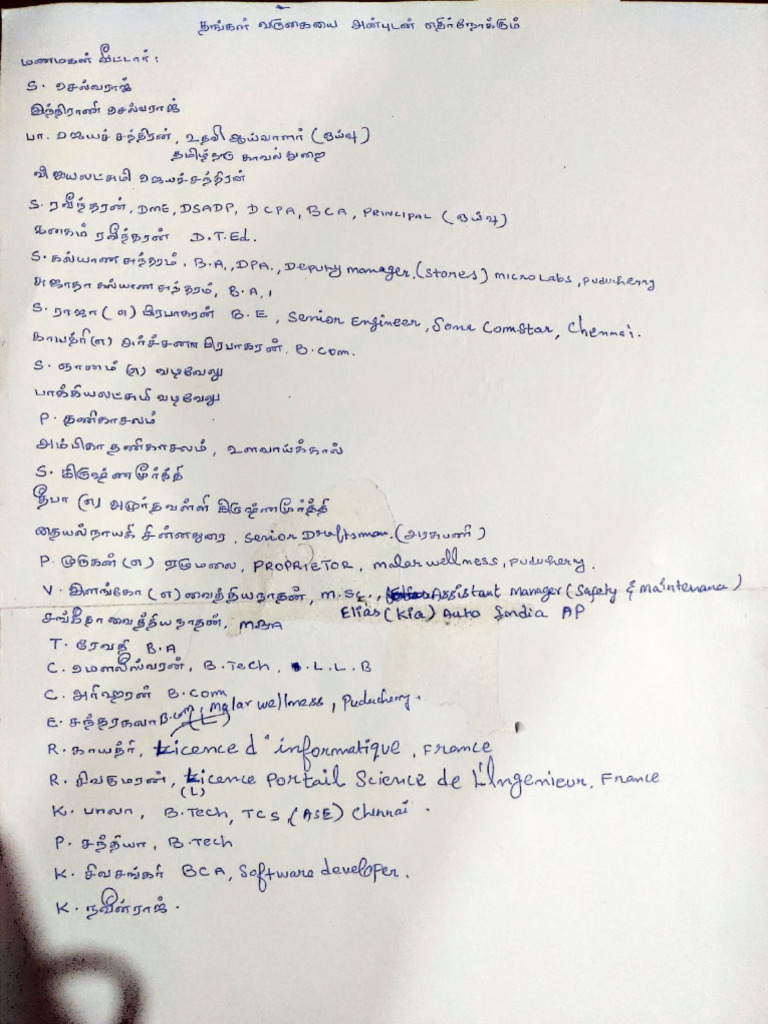 தங்கள் வருகையை அன்புடன் எதிர்நோக்கும்
மணமகள் வீட்டார்:
S. செல்வராஜ்
இந்திராணி செல்வராஜ்
பா. ஜெயச்சந்திரன், உதவி ஆய்வாளர் (ஓய்வு)
தமிழ்நாடு காவல்துறை
விஜயலட்சுமி ஜெயச்சந்திரன்
S. ரவீந்தரன், DME, DSADP, DCPA, BCA, PRINCIPAL (ஓய்வு)
கனகம் ரவீந்தரன் D.T.Ed.
S. கல்யாண சுந்தரம். B.A., DPA., Deputy manager, (Stores) MICRO Labs, puducherry
சுஜாதா கல்யாண சுந்தரம், B.A,,
S. ராஜா (எ) பிரபாகரன் B.E, Senior Engineer, Sona Comstar, Chennai.
காயத்ரி (எ) அர்ச்சனா பிரபாகரன். B.com.
S. ஞானம் (எ) வடிவேலு
பாக்கியலட்சுமி வடிவேலு
P. தணிகாசலம்
அம்பிகா தணிகாசலம், உளவாய்க்கால்
S. கிருஷ்ணமூர்த்தி
தீபா (எ) அமுர்தவள்ளி கிருஷ்ணமூர்த்தி
தையல்நாயகி சின்னதுரை, Senior Draftsman. (அரசுபணி)
P. முருகன் (எ) ஏழுமலை, PROPRIETOR, malar wellness, puducherry.
V. இளங்கோ (எ) வைத்தியநாதன், M.Sc., Assistant Manager (Safety & Maintenana)
Elias (Kia) Auto India AP
சங்கீதா வைத்தியநாதன், MBA
T. ரேவதி B.A
C. மௌலீஸ்வரன், B.Tech, L.L.B
C. அரிஹரன் B.com
E. சந்தரகலா B.com, (L) Malar wellness, Puducherry.
R. காயத்ரி, Licence d'informatique, France
R. சிவகுமரன், Licence Portail Science de L'Ingenieur, France
(L)
K. பாலா, B.Tech, TCS, (ASE) Chennai.
P. சந்தியா, B.Tech
K. சிவசங்கர் BCA, Software developer.
K. நவீன்ராஜ்.